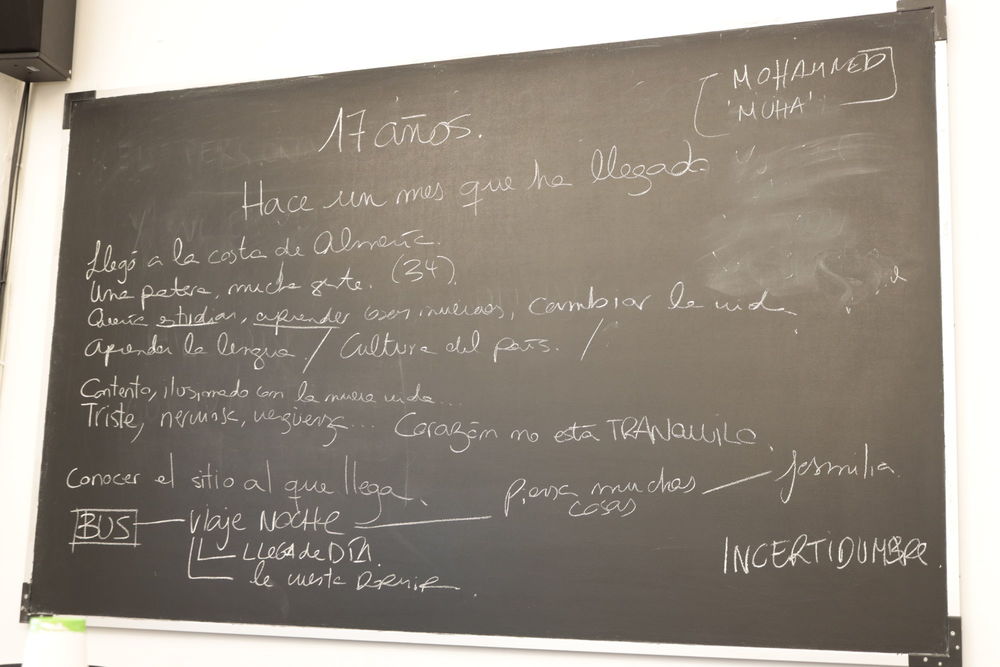 MOHAMMED
'MUHA'
17 años.
Hace un mes que ha llegado
Llegó a la costa de Almería.
Una patera, mucha gente. (34).
Quería estudiar, aprender cosas nuevas, cambiar la vida
Aprender la lengua. / Cultura del país. /
Contento, ilusionado con la nueva vida...
Triste, nervioso, vergüenza... Corazón no está TRANQUILO.
Conocer el sitio al que llega.
Piensa muchas cosas — familia
BUS — Viaje NOCHE —
LLEGA de DÍA.
le cuesta DORMIR.
INCERTIDUMBRE.